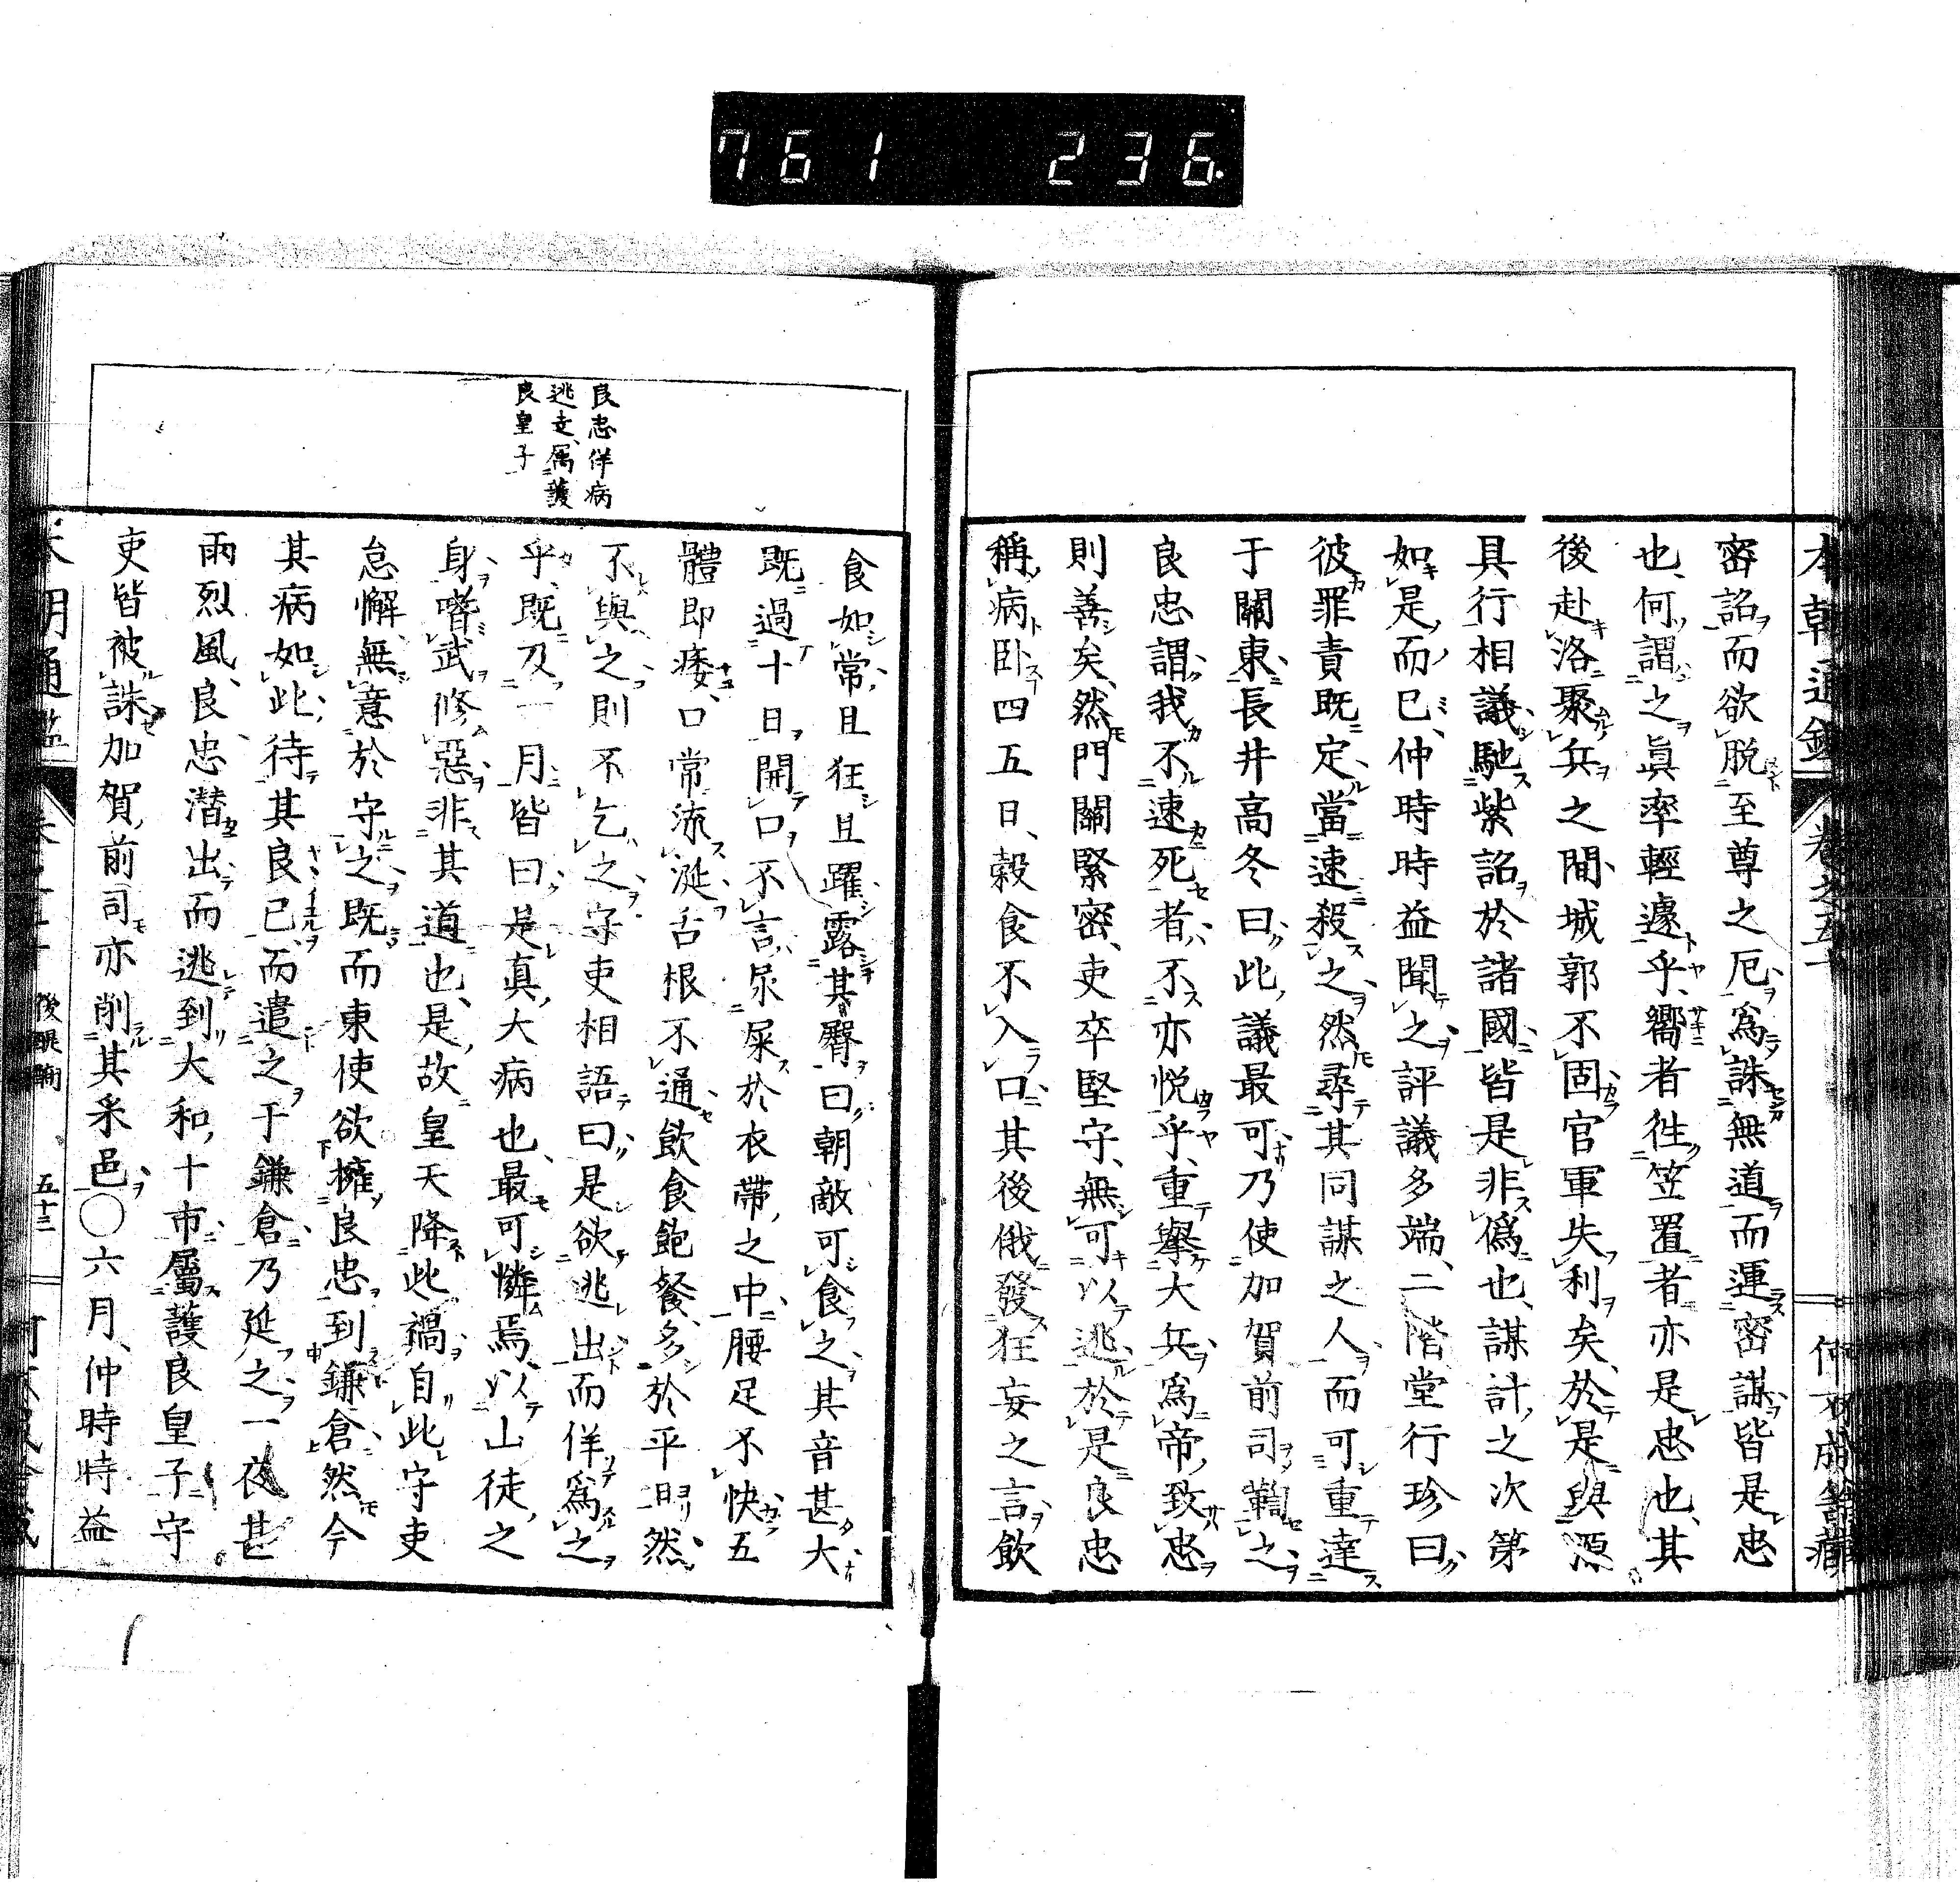 761 236.
本朝通鑑 卷之五十
密詔而欲脱至尊之厄爲誅無道而運密謀皆是忠
也何謂之眞率輕遽乎嚮者徃笠置者亦是忠也其
後赴洛聚兵之間城郭不固官軍失利矣於是與源
具行相議馳紫詔於諸國皆是非僞也謀計之次第
如是而已仲時時益聞之評議多端二階堂行珍曰
彼罪責既定當速殺之然尋其同謀之人而可重達
于關東長井高冬曰此議最可乃使加賀前司鞫之
良忠謂我不速死者不亦悦乎重擧大兵爲帝致忠
則善矣然門關緊密吏卒堅守無可以逃於是良忠
稱病臥四五日穀食不入口其後俄發狂妄之言飲
良忠佯病
逃走属護
良皇子
食如常且狂且躍露其臀曰朝敵可食之其音甚大
既過十日開口不言尿屎於衣帶之中腰足不快五
體即痿口常流涎舌根不通飲食飽餐多於平日然
不與之則不乞之守吏相語曰是欲逃出而佯爲之
乎既及一月皆曰是眞大病也最可憐焉以山徒之
身嗜武修惡非其道也是故皇天降此禍自此守吏
怠懈無意於守之既而東使欲擁良忠到鎌倉然今
其病如此待其良已而遣之于鎌倉乃延之一夜甚
雨烈風良忠潜出而逃到大和十市屬護良皇子守
吏皆被誅加賀前司亦削其釆邑〇六月仲時時益
後醍醐 五十三